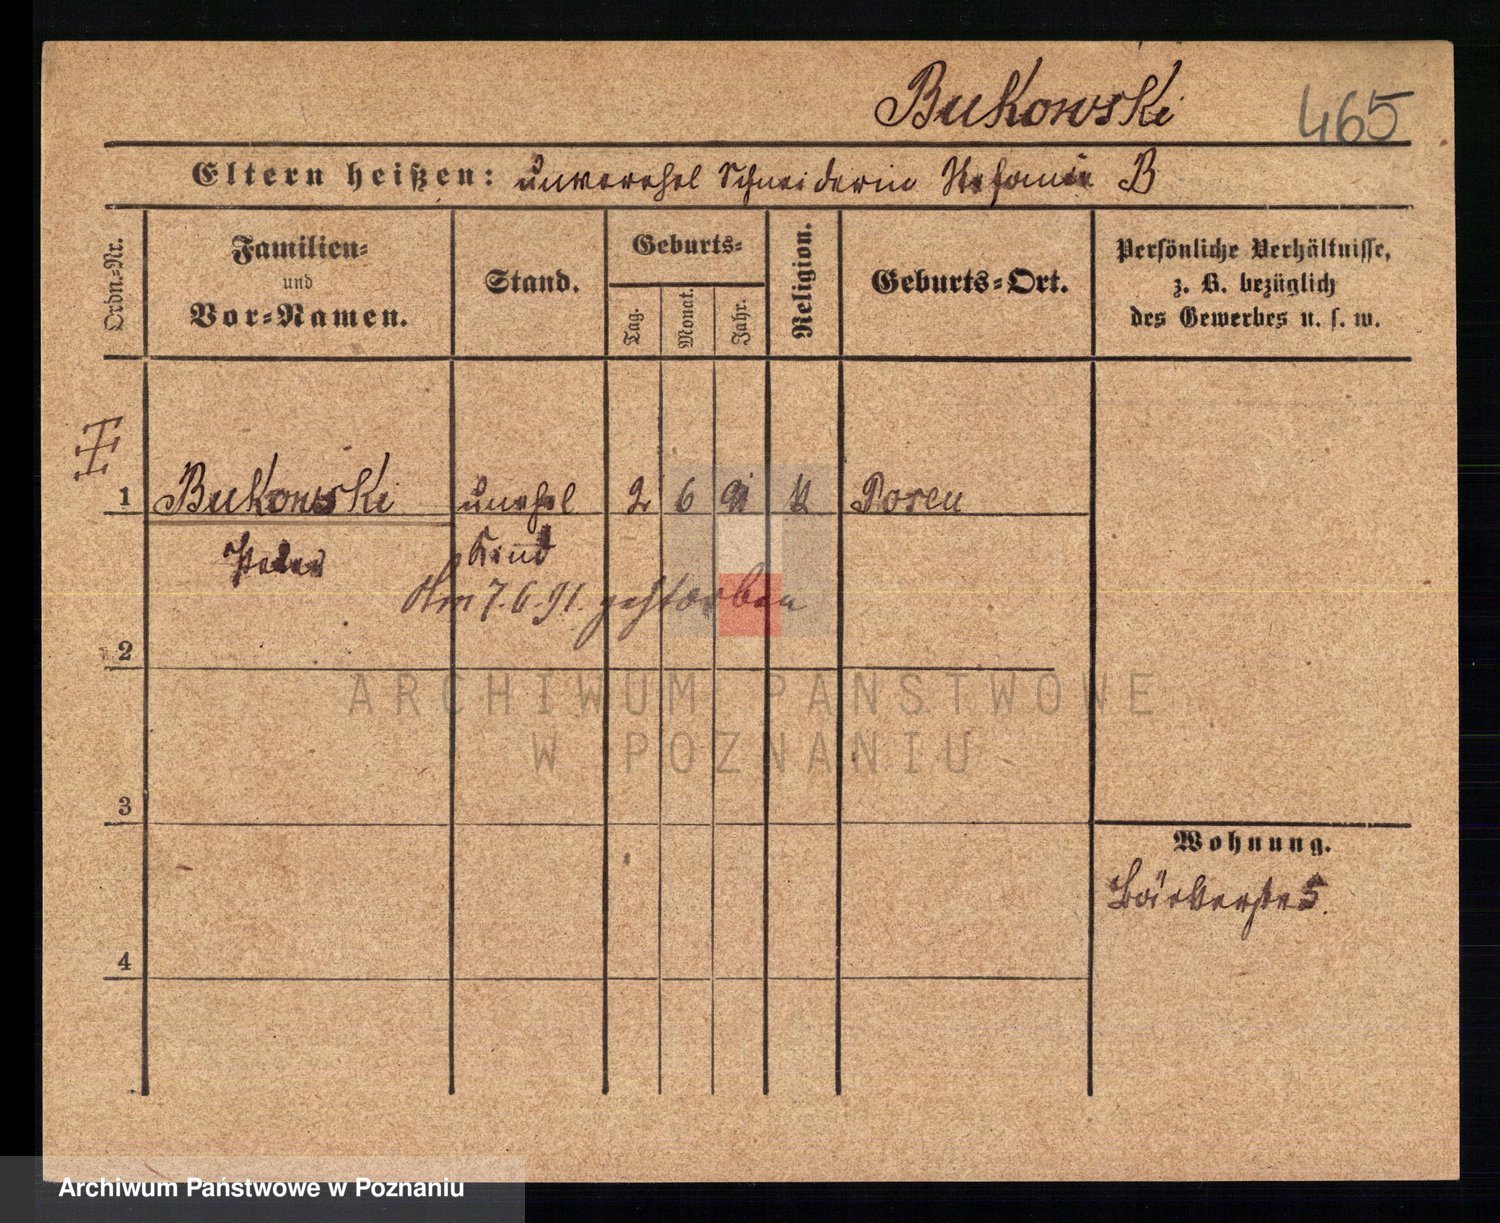 Bukowski
465
Eltern heißen: unverehel Schneiderin Stefanie B
Ordn.=Nr.
Familien=
und
Vor=Namen.
Stand.
Geburts=
Tag.
Monat.
Jahr.
Religion.
Geburts=Ort.
Persönliche Verhältnisse,
z. B. bezüglich
des Gewerbes u. s. w.
1 Bukowski unehel 2 6 91 k Posen
Peter Kind
Am 7.6.91. gestorben
2
ARCHIWUM PAŃSTWOWE
W POZNANIU
3
Wohnung.
5.
4
Archiwum Państwowe w Poznaniu